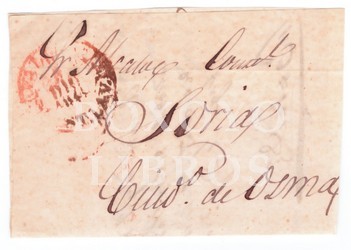 Sr Alcalde Const.
Soria
Ciud.º de Osma
BOXOYO
LIBROS